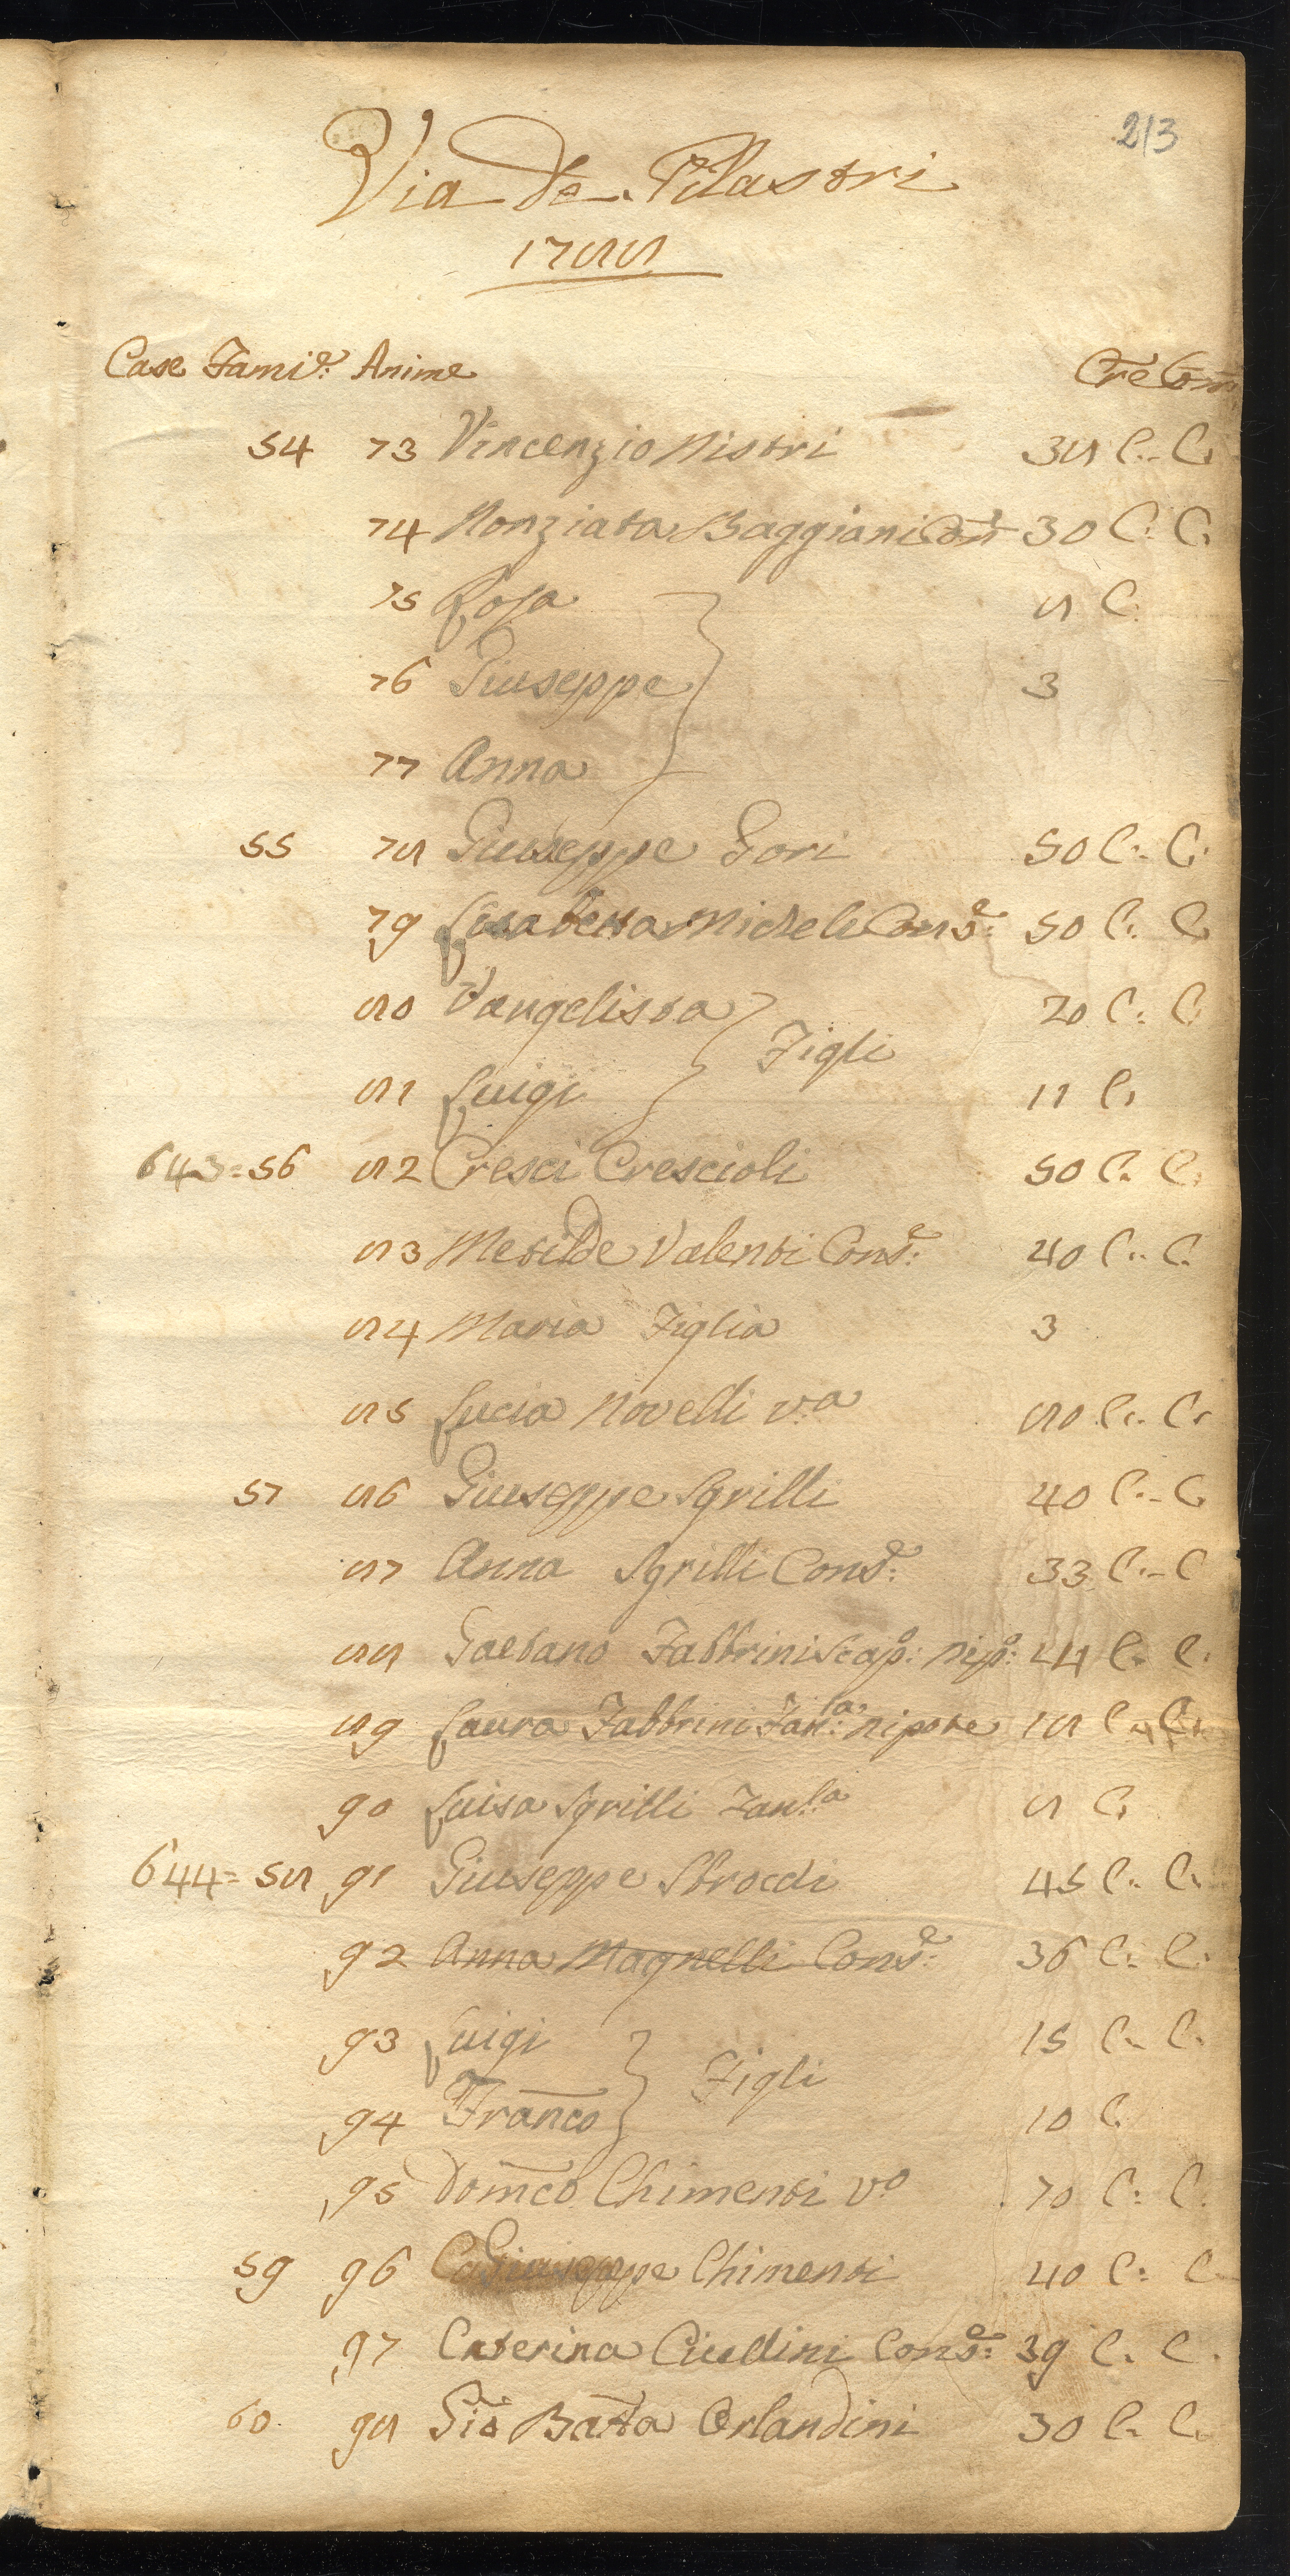 213
Via de Pilastri
1788
Case Famie: Anime Cre Com
54 73 Vincenzio Nistri 38 C. C.
74 Nonziata Baggiani Con: 30 C. C.
75 Rosa 8 C.
76 Giuseppe 3
77 Anna
55 78 Giuseppe Gori 50 C. C.
79 Lisabetta Micheli Conse: 50 C. C.
80 Vangelista 20 C. C.
Figli
81 Luigi 11 C.
643=56 82 Cresci Crescioli 50 C. C.
83 Metilde Valenti Conse: 40 C. C.
84 Maria Figlia 3
85 Lucia Novelli va 80 C. C.
57 86 Giuseppe Sgrilli 40 C. C.
87 Anna Sgrilli Conse: 33 C. C.
88 Gaetano Fabbrini Scapo: nipo: 24 C. C.
89 Laura Fabbrini Fanla: nipote 18 C. C.
90 Luisa Sgrilli Fanla 8 C.
644=58 91 Giuseppe Sbrocchi 45 C. C.
92 Anna Magnelli Conse: 36 C. C.
93 Luigi 15 C. C.
Figli
94 Franco 10 C.
95 Domco Chimenti vo 70 C. C.
59 96 Giuseppe Chimenti 40 C. C.
97 Caterina Ciullini Conse: 39 C. C.
60 98 Gio Batta Orlandini 30 C. C.